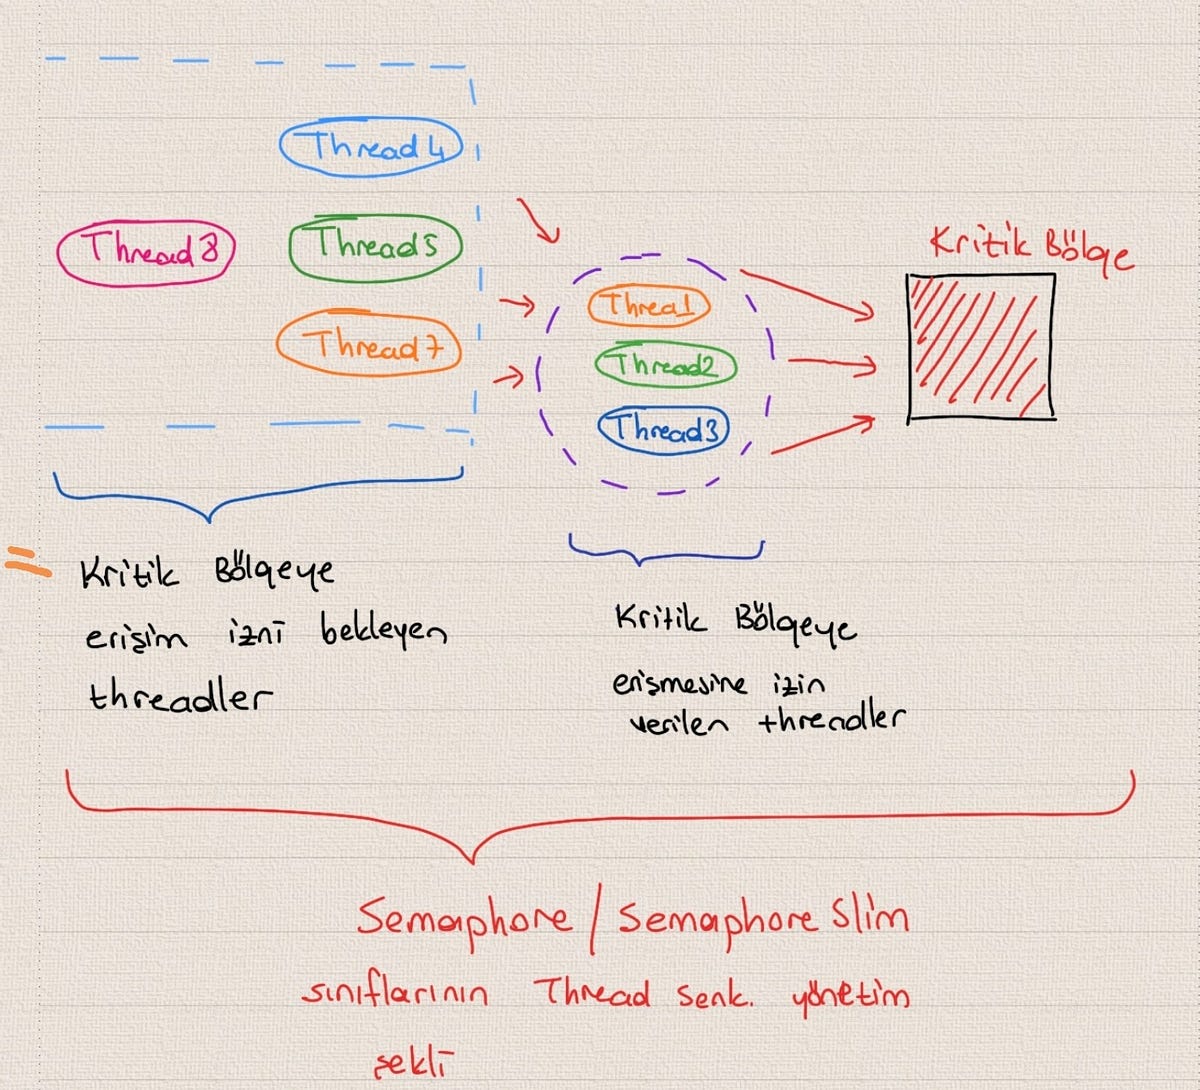 Thread 4
Thread 8
Thread5
Thread 7
Threa1
Thread2
Thread3
Kritik Bölge
Kritik Bölgeye
erişim izni bekleyen
threadler
Kritik Bölgeye
erişmesine izin
verilen threadler
Semaphore / Semaphore Slim
sınıflarının Thread senk. yönetim
şekli